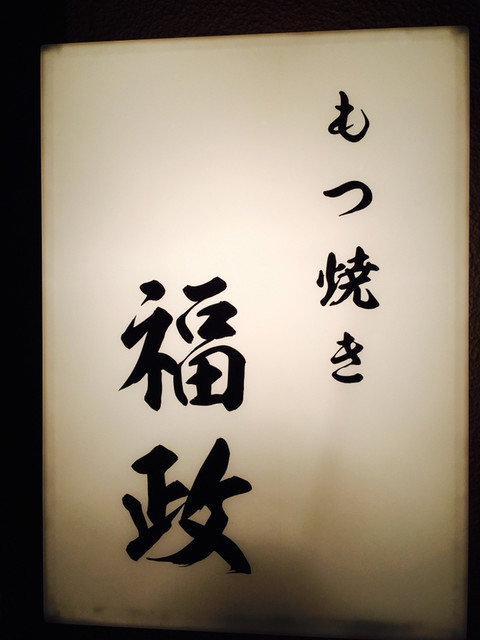 もつ焼き
福政